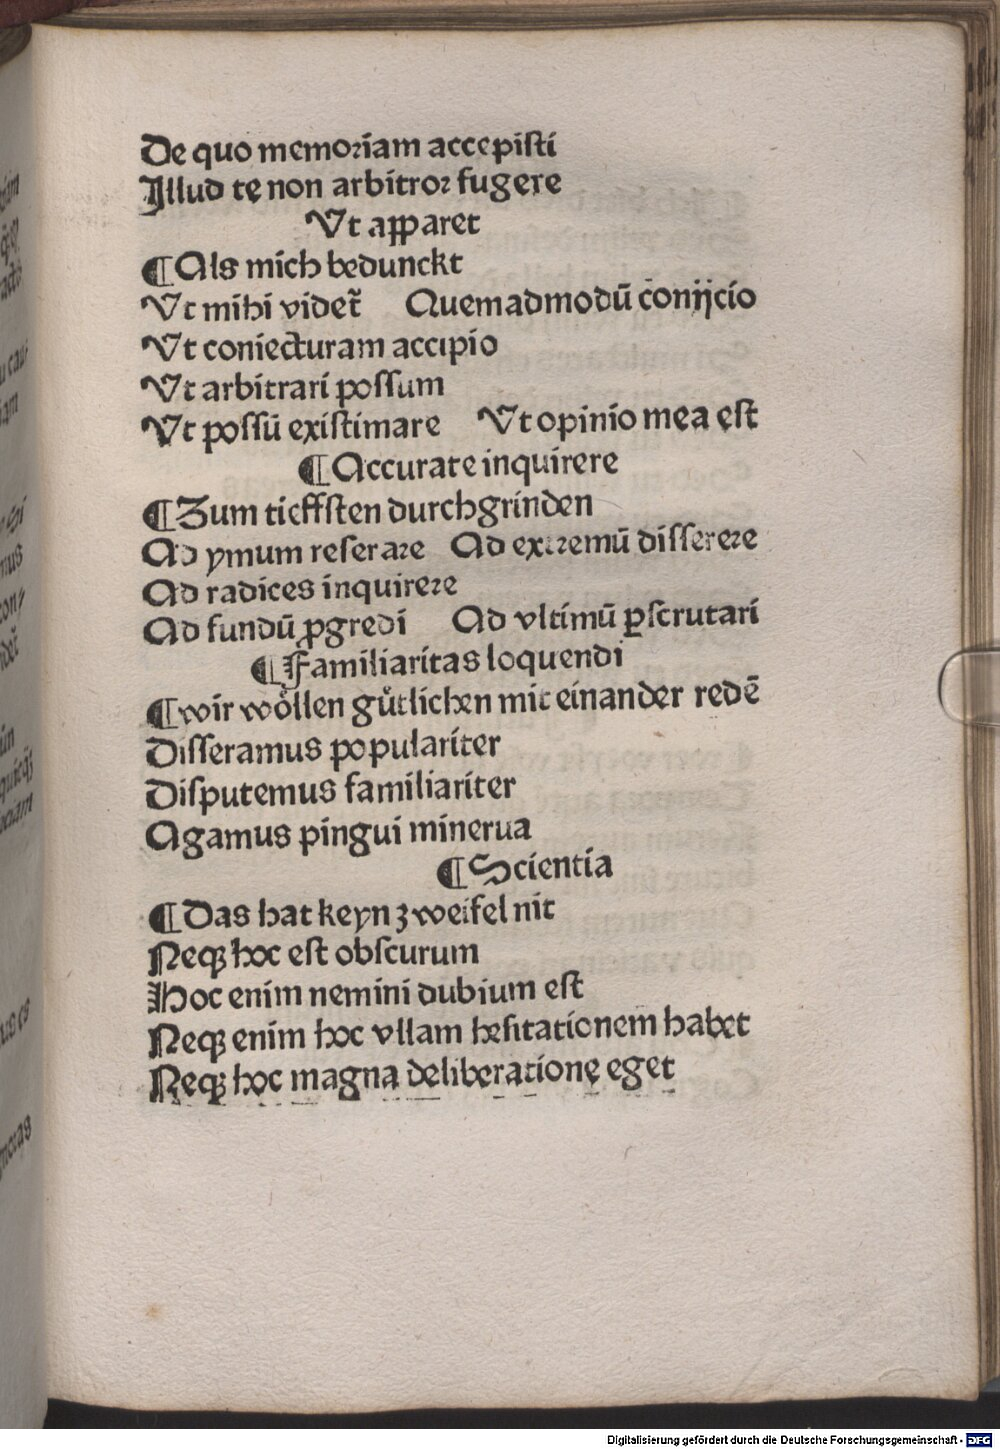 De quo memoriam accepisti
Illud tę non arbitror fugere
Vt apparet
¶ Als mich bedunckt
Vt mihi videt᷑ Quemadmodū conijcio
Vt coniecturam accipio
Vt arbitrari possum
Vt possū existimare Vt opinio mea est
¶ Accurate inquirere
¶ Zum tieffsten durchgrinden
Ad ymum reserare Ad extremū disserere
Ad radices inquirere
Ad fundū ꝓgredi Ad vltimū ꝑscrutari
¶ Familiaritas loquendi
¶ wir woͤllen guͤtlichen mit einander redē
Disseramus populariter
Disputemus familiariter
Agamus pingui minerua
¶ Scientia
¶ Das hat keyn zweifel nit
Neqꝫ hoc est obscurum
Hoc enim nemini dubium est
Neqꝫ enim hoc vllam hesitationem habet
Neqꝫ hoc magna deliberationę eget
Digitalisierung gefördert durch die Deutsche Forschungsgemeinschaft - DFG